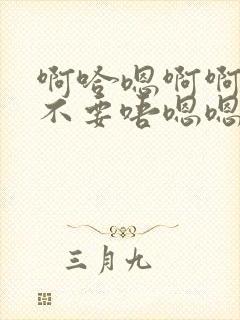 啊哈嗯啊啊
不要唔嗯嗯
三月九